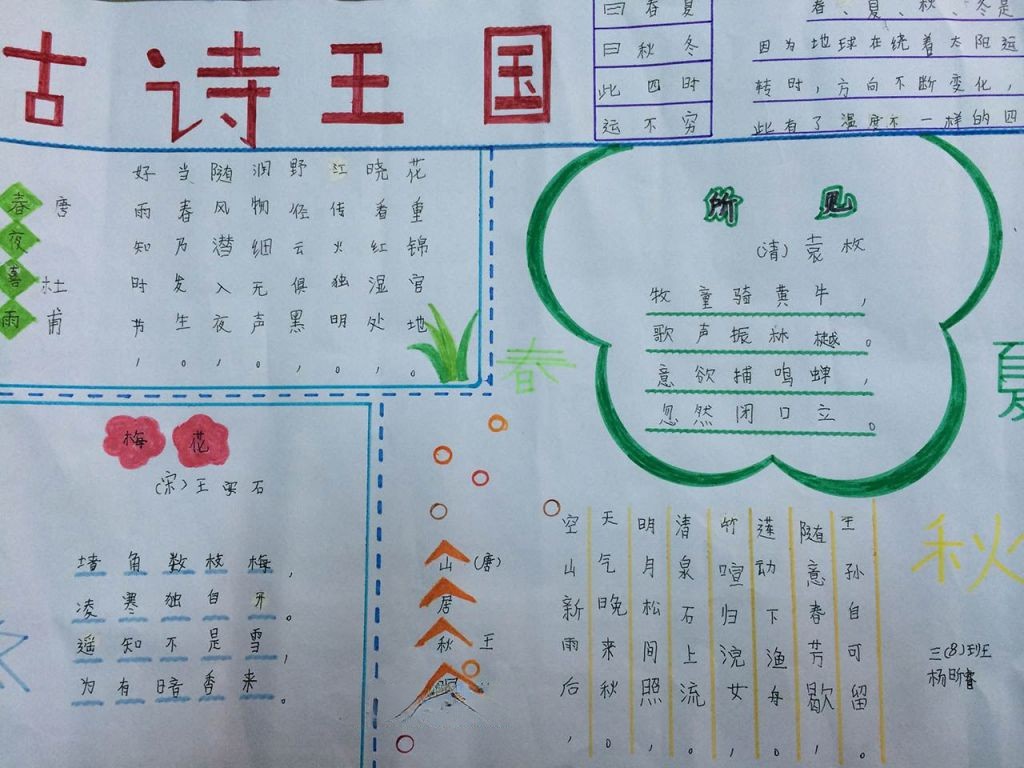 古诗王国
曰春夏
曰秋冬
此四时
运不穷
春、夏、秋、冬是
因为地球在绕着太阳运
转时，方向不断变化，
此有了温度不一样的四
春夜喜雨
唐 杜甫
好雨知时节，
当春乃发生。
随风潜入夜，
润物细无声。
野径云俱黑，
江传火独明。
晓看红湿处，
花重锦官地。
春
所见
(清)袁枚
牧童骑黄牛，
歌声振林樾。
意欲捕鸣蝉，
忽然闭口立。
夏
梅花
(宋)王安石
墙角数枝梅，
凌寒独自开。
遥知不是雪，
为有暗香来。
山居秋暝
(唐) 王
空山新雨后，
天气晚来秋。
明月松间照，
清泉石上流。
竹喧归浣女，
莲动下渔舟。
随意春芳歇，
王孙自可留。
秋
三(8)班王
杨昕睿